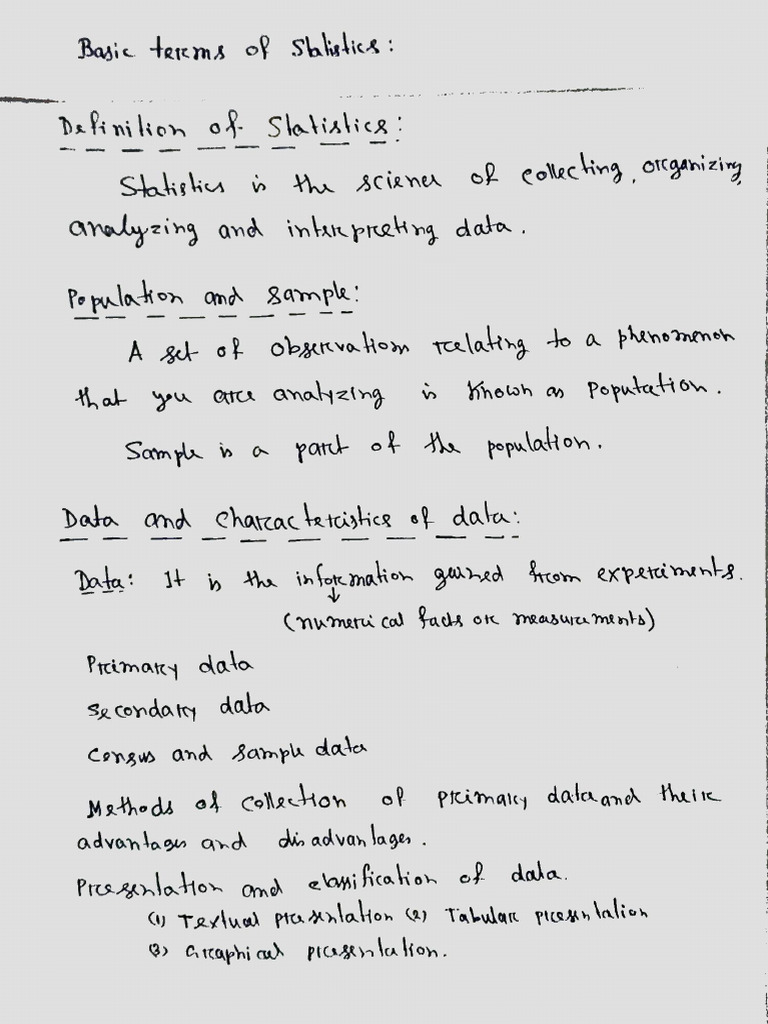 Basic terms of Statistics:
Definition of Statistics:
Statistics is the science of collecting, organizing,
analyzing and interpreting data.
Population and sample:
A set of observations relating to a phenomenon
that you are analyzing is known as population.
Sample is a part of the population.
Data and characteristics of data:
Data: It is the information gained from experiments.
(numerical facts or measurements)
Primary data
Secondary data
Census and sample data
Methods of collection of primary data and their
advantages and disadvantages.
Presentation and classification of data.
(1) Textual presentation (2) Tabular presentation
(3) Graphical presentation.